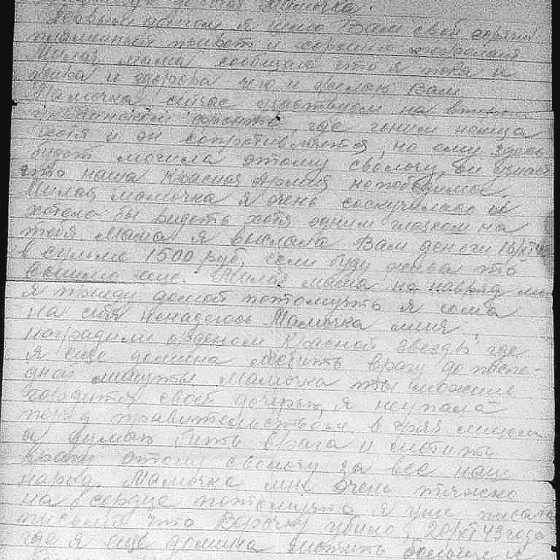 дорогая Мамочка.
Первым долгом я шлю Вам свой горячий
пламенный привет и хорошие пожелания
Милая мама сообщаю что я жива и
здорова чего и желаю Вам
Мамочка, сейчас участвуем на
Украинском фронте, где гоним немца
хотя и он сопротивляется, но ему здесь
будет могила этому сволочу, он узнает
что наша Красная Армия непобедима
Милая Мамочка я очень соскучилась
хотела бы видеть хотя одним глазком на
тебя Мама я выслала Вам деньги
в сумме 1500 руб, если буду жива то
вышлю еще. Милая мама но навряд ли
я приеду домой потомучто я сама
на себя ненадеюсь Мамочка меня
наградили орденом Красной Звезды где
я еще должна мстить врагу до послед-
ней минуты Мамочка ты можешь
гордится своей дочерью, я неупала
перед правительством в грязь лицом
а думаю бить врага и мстить
врагу этому сволочу за все наше
народ. Мамочка мне очень тяжело
на сердце потомучто я уже писала
письмо что убило 20/XI 43 года
где я еще должна мстить